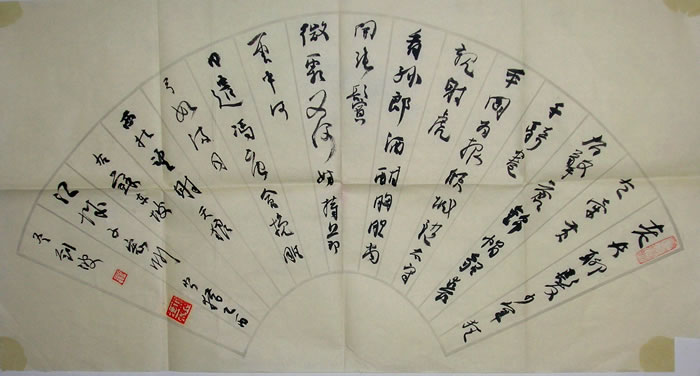 老夫聊發少年狂
左牽黃
右擎
蒼錦帽貂裘
千騎卷
平岡為報傾城隨太守
親射虎
看孫郎酒酣胸膽尚
開張鬢
微霜又何妨持節
雲中何
日遣馮唐會挽雕
弓如滿月
西北望射天狼
右蘇東坡
江城子密州
乙酉